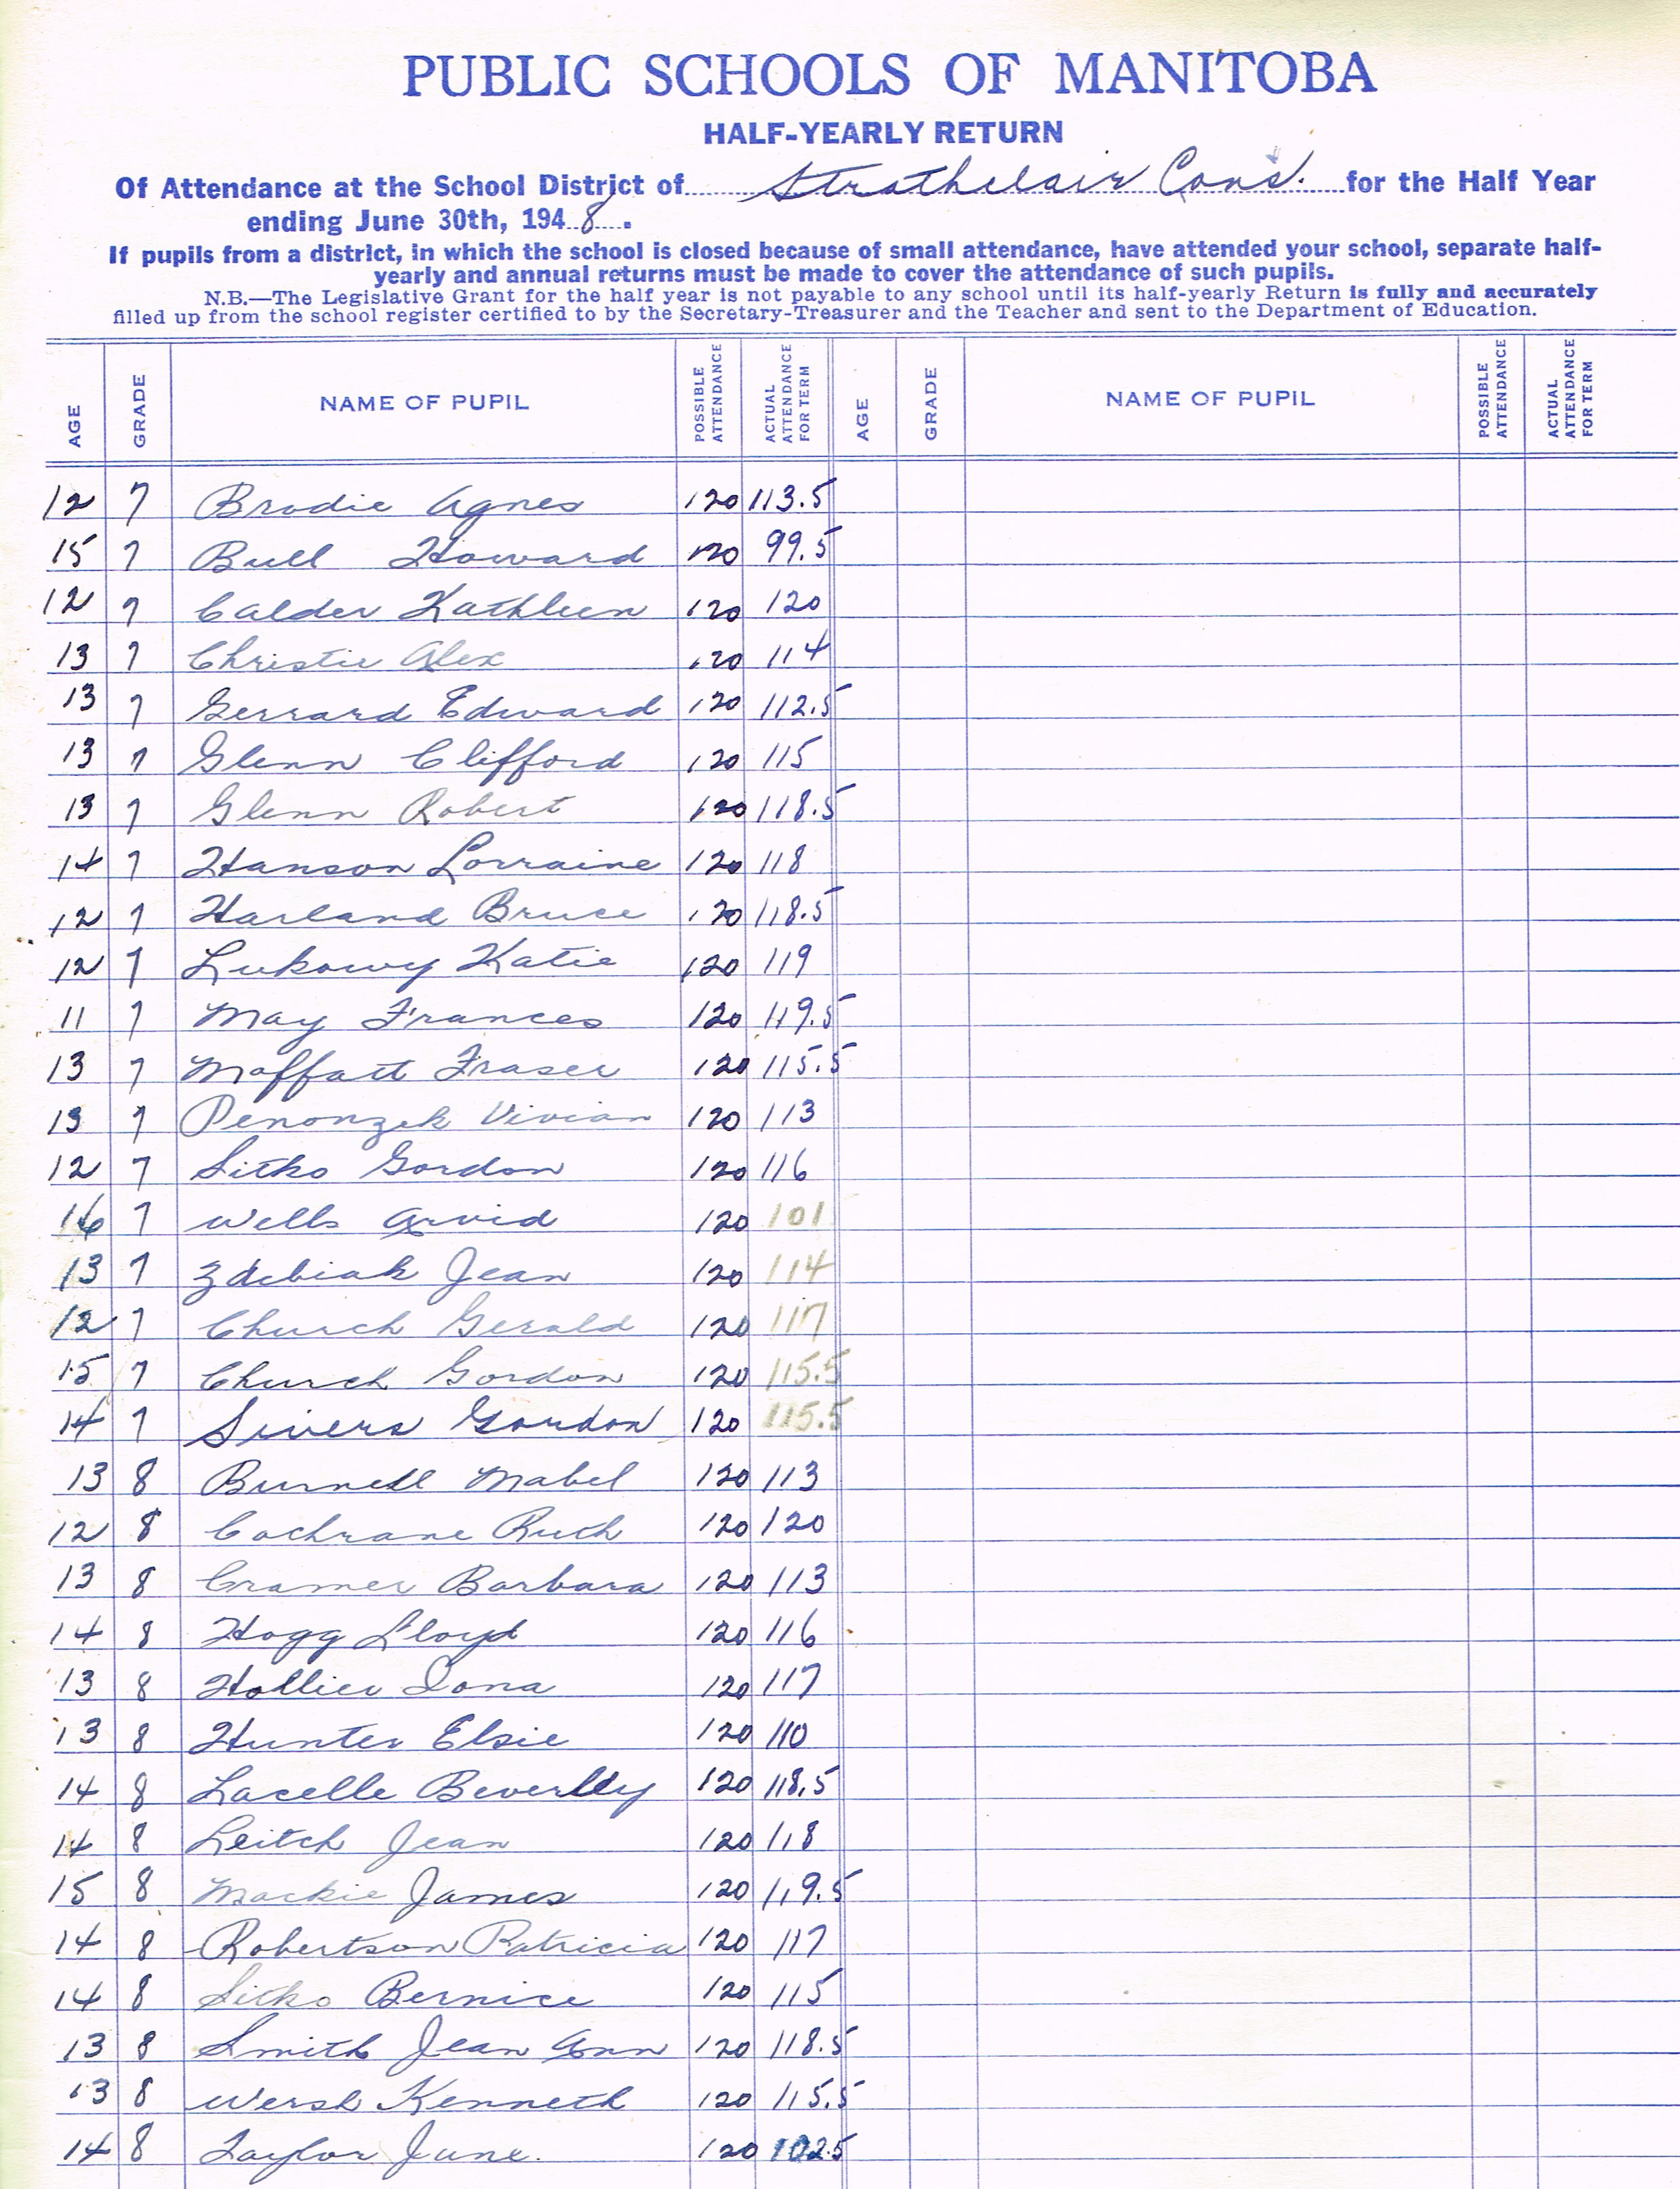 PUBLIC SCHOOLS OF MANITOBA
HALF-YEARLY RETURN
Of Attendance at the School District of Strathclair Cons'd. for the Half Year
ending June 30th, 1948.
If pupils from a district, in which the school is closed because of small attendance, have attended your school, separate half-
yearly and annual returns must be made to cover the attendance of such pupils.
N.B.—The Legislative Grant for the half year is not payable to any school until its half-yearly Return is fully and accurately
filled up from the school register certified to by the Secretary-Treasurer and the Teacher and sent to the Department of Education.
AGE GRADE NAME OF PUPIL POSSIBLE ATTENDANCE ACTUAL ATTENDANCE FOR TERM AGE GRADE NAME OF PUPIL POSSIBLE ATTENDANCE ACTUAL ATTENDANCE FOR TERM
12 7 Brodie Agnes 120 113.5
15 7 Bull Howard 120 99.5
12 7 Calder Kathleen 120 120
13 7 Christie Alex 120 114
13 7 Gerrard Edward 120 112.5
13 7 Glenn Clifford 120 115
13 7 Glenn Robert 120 118.5
14 7 Hanson Lorraine 120 118
12 7 Harland Bruce 120 118.5
12 7 Lukowy Katie 120 119
11 7 May Frances 120 119.5
13 7 Moffatt Fraser 120 115.5
13 7 Penonzek Vivian 120 113
12 7 Sitko Gordon 120 116
16 7 Wells Arvid 120 101
13 7 Zdebiak Jean 120 114
12 7 Church Gerald 120 117
15 7 Church Gordon 120 115.5
14 7 Sivers Gordon 120 115.5
13 8 Burnell Mabel 120 113
12 8 Cochrane Ruth 120 120
13 8 Cramer Barbara 120 113
14 8 Hogg Lloyd 120 116
13 8 Hollier Iona 120 117
13 8 Hunter Elsie 120 110
14 8 Lacelle Beverlly 120 118.5
14 8 Leitch Jean 120 118
15 8 Mackie James 120 119.5
14 8 Robertson Patricia 120 117
14 8 Sitko Bernice 120 115
13 8 Smith Jean Ann 120 118.5
13 8 Wersh Kenneth 120 115.5
14 8 Taylor June. 120 102.5